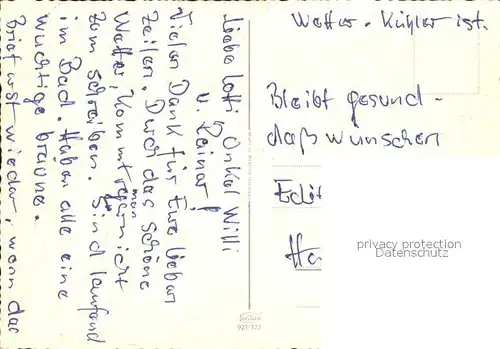 Liebe Lotti, Onkel Willi
u. Reinar!
Vielen Dank für Eure lieben
Zeilen. Durch das schöne
Wetter, kommt man gar nicht
zom schreiben. Sind laufend
im Bad. Haben alle eine
wuchtige bräune.
Brief erst wieder, wenn das
Wetter. Kühler ist.
Bleibt gesund -
daß wünschen
privacy protection
Datenschutz
921/122